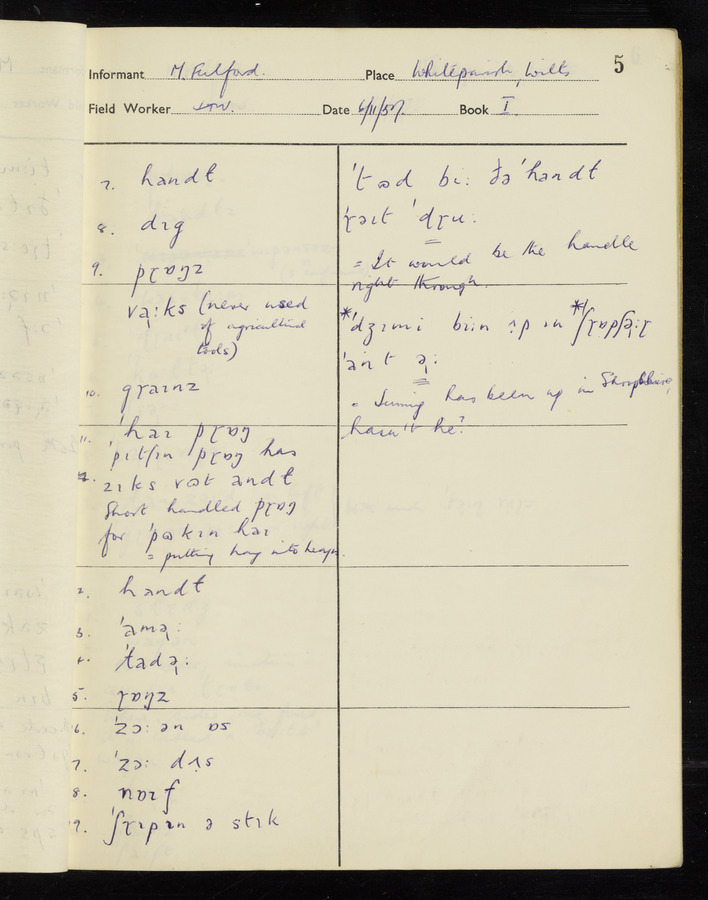 5
Informant M. Fulford. Place Whiteparish, Wilts
Field Worker Date 6/11/57. Book I.
7. handɫ
8. dɪg
9. pɽɒŋz
və̣:ks (never used
of agricultural
tools)
10. gɽaɪnz
11. 'haɪ pɽɒŋ
pɪtʃɪn pɽɒŋ has
zɪks vət andɫ
Short handled pɽɒŋ
for 'pɷkɪn haɪ
= putting hay into heaps.
2. handɫ
3. 'amə̣:
4. 'ladə̣:
5. ɽɒŋz
6. 'zɔ: ən ɒs
7. 'zɔ: dʌs
8. naɪf
9. 'ʃɽɪpɪn ə stɪk
'tɷd bi: ðə 'handɫ
'ɽəɪt 'dɽu:
= It would be the handle
right through.
*'dʒɪmi bi:n ʌp ɪn *'ʃɽɒpʃə̣:ɽ
'ant ə̣:
= Jimmy has been up in Shropshire,
hasn't he?